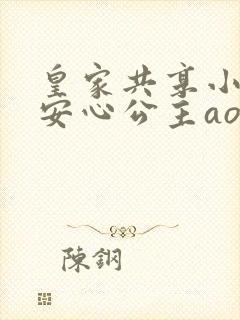 皇家共享小
安心公主ao
陳鋼